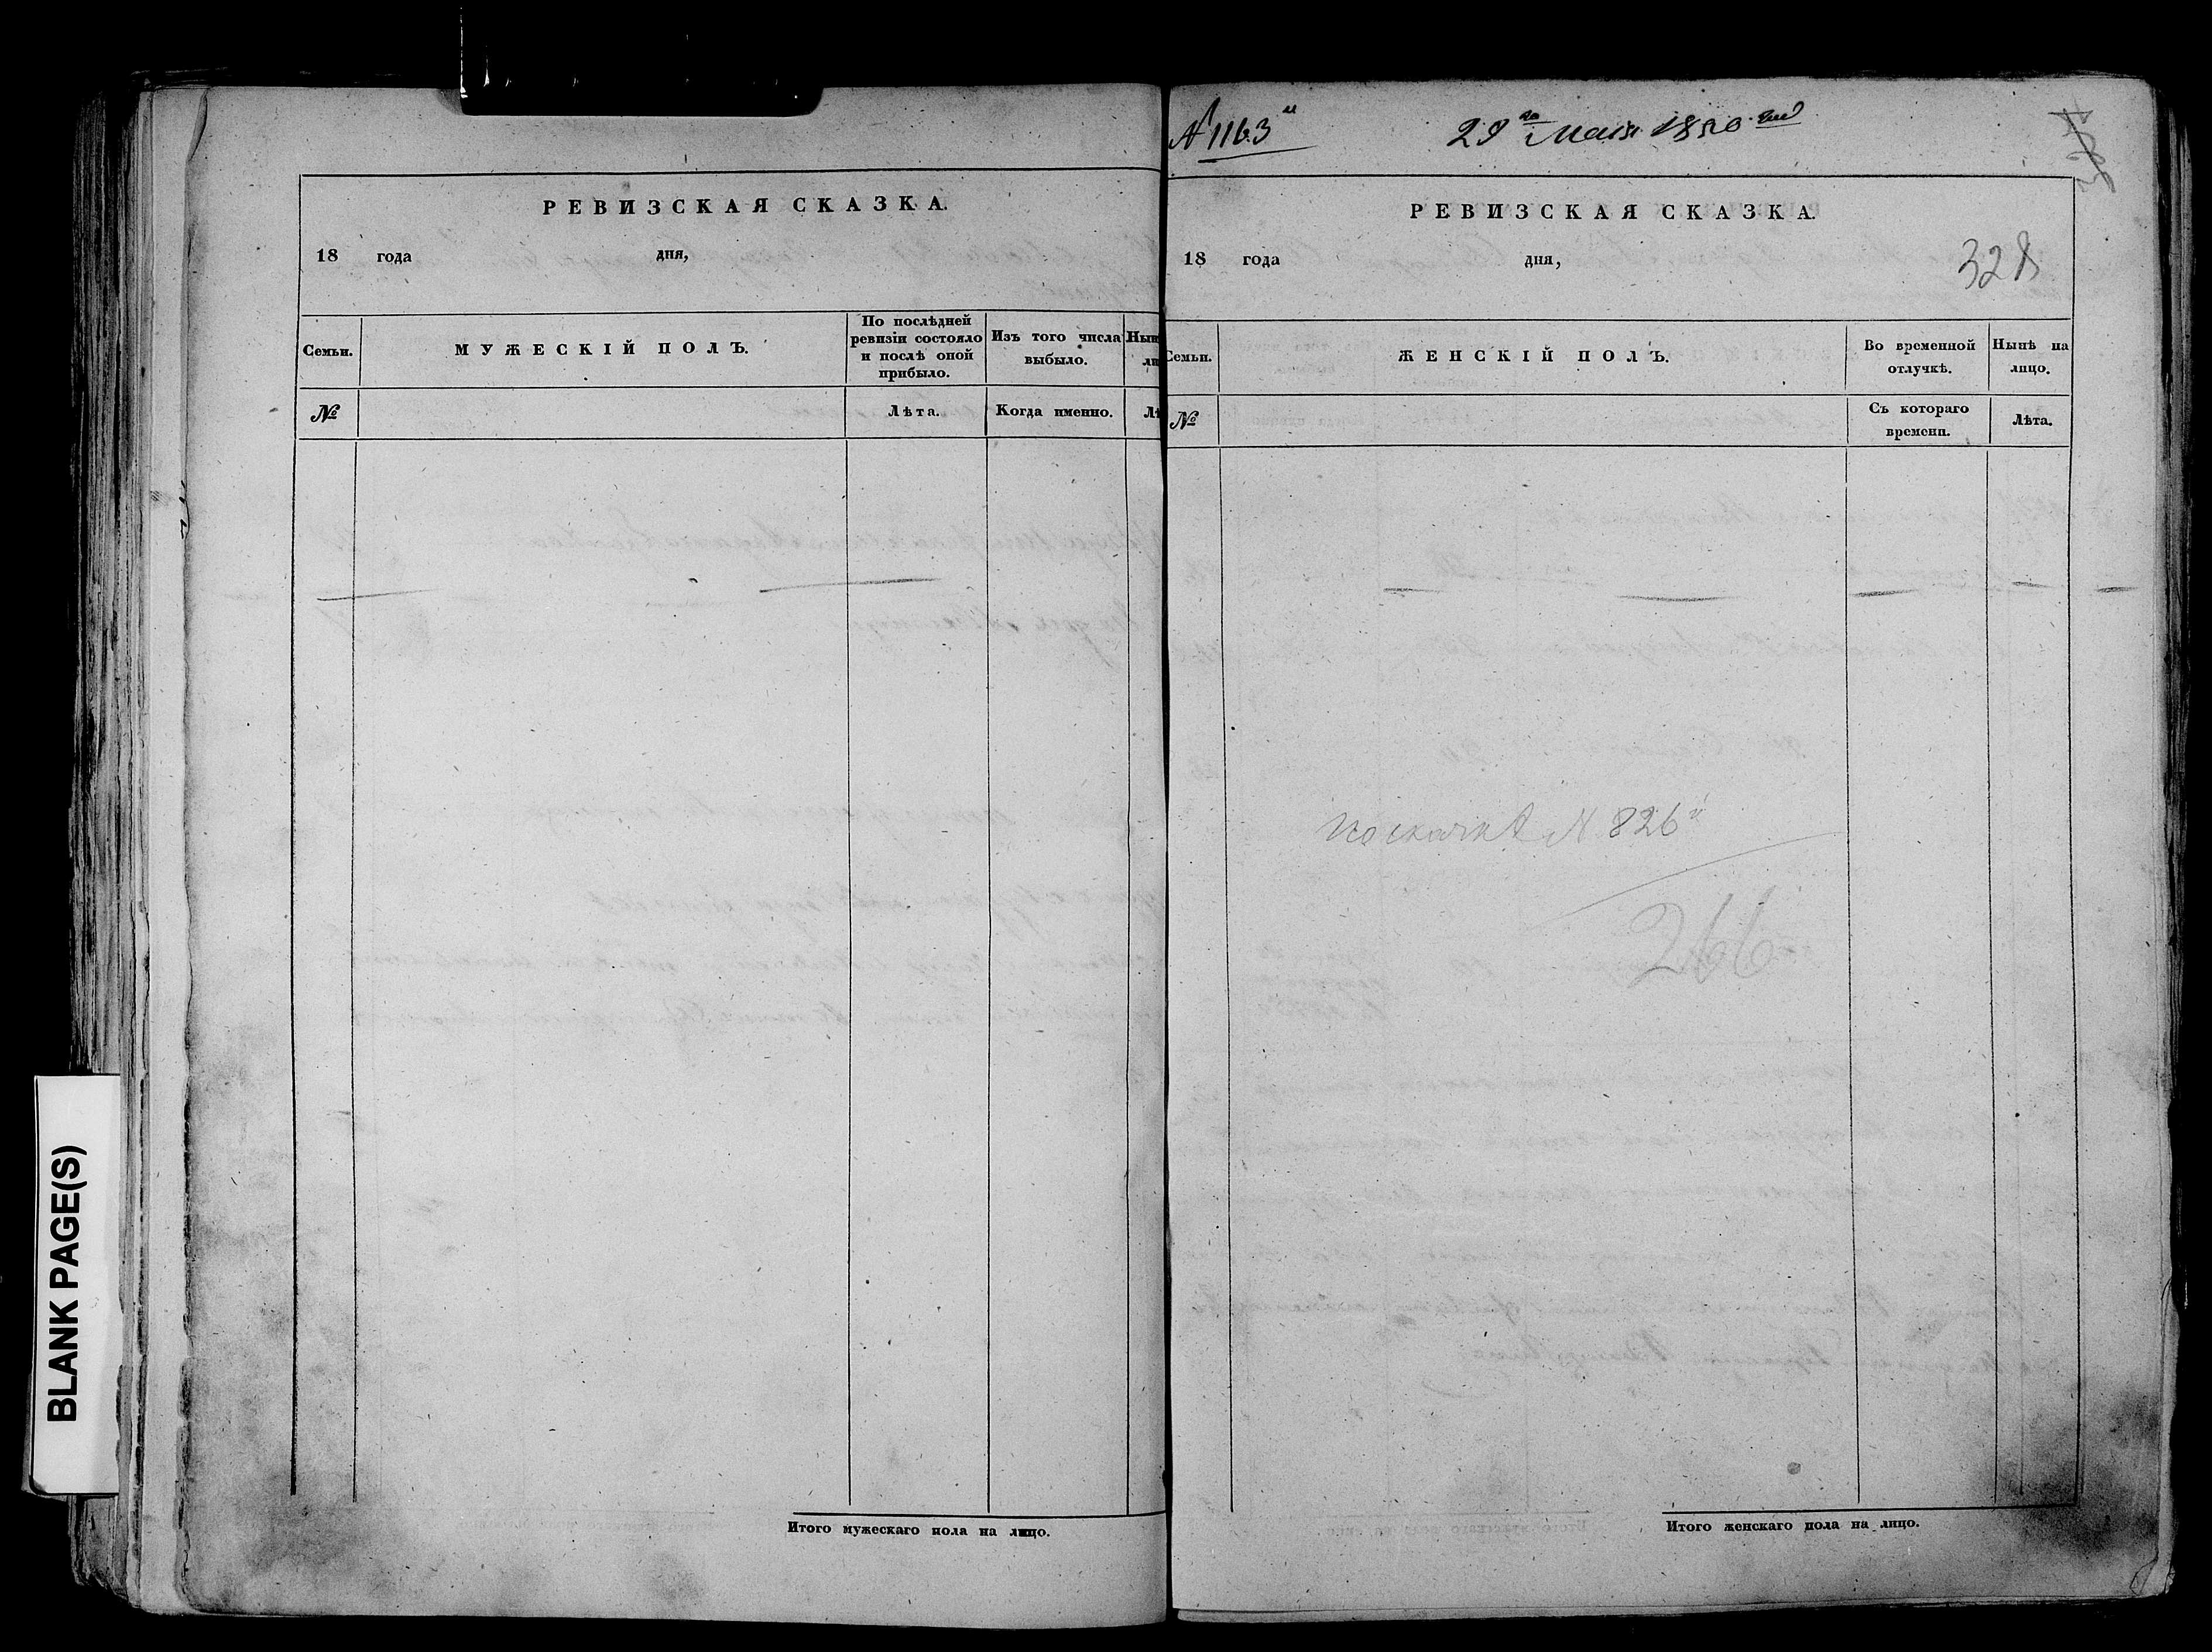 РЕВИЗСКАЯ СКАЗКА.
18 года дня,
Семьи.
МУЖЕСКІЙ ПОЛЪ.
По послѣдней
ревизіи состояло
и послѣ оной
прибыло.
Изъ того числа
выбыло.
Нын
ли
№
Лѣта.
Когда именно.
Лѣ
Итого мужескаго пола на лицо.
№ 1163й
29го Маія 1850 год
РЕВИЗСКАЯ СКАЗКА.
18 года дня,
328
Семьи.
ЖЕНСКІЙ ПОЛЪ.
Во временной
отлучкѣ.
Нынѣ на
лицо.
№
Съ котораго
времени.
Лѣта.
По сказкѣ № 826й
266
Итого женскаго пола на лицо.
BLANK PAGE(S)